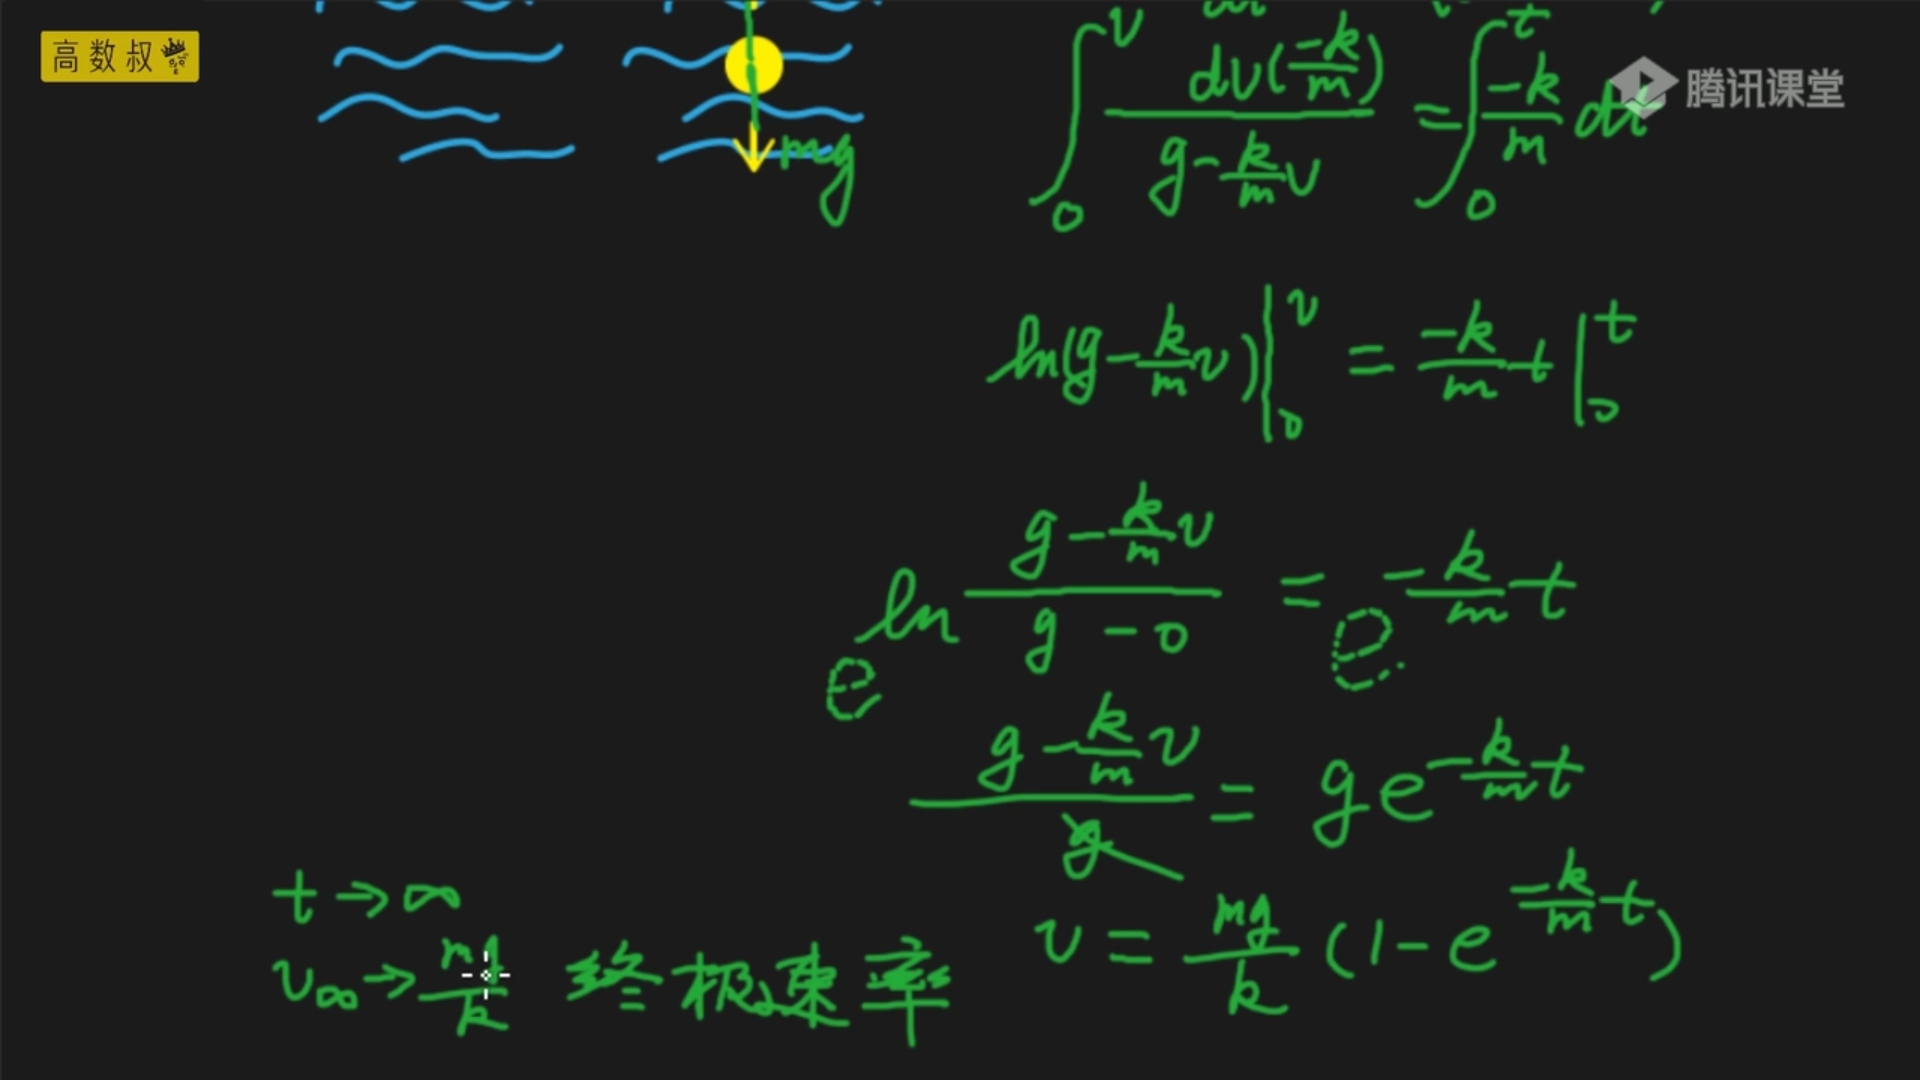 高数叔
腾讯课堂
mg
∫₀^v dv(-k/m) / (g - k/m v) = ∫₀^t -k/m dt
ln(g - k/m v)|₀^v = -k/m t|₀^t
e^(ln (g - k/m v)/(g - 0)) = e^(-k/m t)
(g - k/m v)/g = g e^(-k/m t)
t → ∞
v = mg/k (1 - e^(-k/m t))
v∞ → mg/k 终极速率